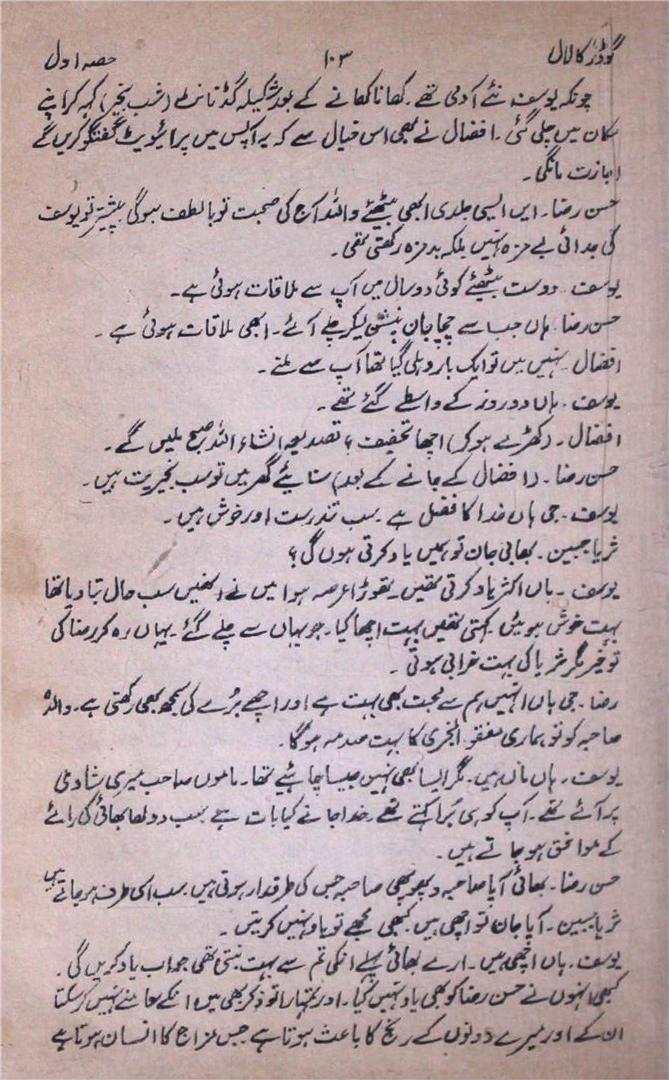 گودڑ کا لال ۱۰۳ حصہ اول
چونکہ یوسف نئے آدمی تھے۔ کھانا کھانے کے بعد شکیلہ گڈ نائٹ (شب بخیر) کہہ کر اپنے
مکان میں چلی گئی۔ افضال نے بھی اس خیال سے کہ یہ آپس میں پرائیویٹ گفتگو کریں گے
اجازت مانگی۔
حسن رضا۔ ایں ایسی جلدی ابھی بیٹھئے واللہ آج کی صحبت تو بالطف ہوگی پیشتر تو یوسف
کی جدائی بے مزہ نہیں بلکہ بدمزہ رکھتی تھی۔
یوسف۔ دوست بیٹھئے کوئی دو سال میں آپ سے ملاقات ہوئی ہے۔
حسن رضا۔ ہاں جب سے چچا جان پنشن لیکر چلے آئے۔ ابھی ملاقات ہوئی ہے۔
افضال۔ نہیں میں تو ایک بار دہلی گیا تھا آپ سے ملنے۔
یوسف۔ ہاں دو روز کے واسطے گئے تھے۔
افضال۔ (کھڑے ہو کر) اچھا تخفیف تصدیعہ انشاء اللہ صبح ملیں گے۔
حسن رضا۔ (افضال کے جانے کے بعد) سنائیے گھر میں تو سب بخیریت ہیں۔
یوسف۔ جی ہاں خدا کا فضل ہے سب تندرست اور خوش ہیں۔
ثریا جبین۔ بھابی جان تو ہمیں یاد کرتی ہوں گی؟
یوسف۔ ہاں اکثر یاد کرتی تھیں۔ تھوڑا عرصہ ہوا میں نے انھیں سب حال بتا دیا تھا
بہت خوش ہوئیں۔ کہتی تھیں بہت اچھا کیا۔ جو یہاں سے چلے گئے۔ یہاں رہ کر رضا کی
تو خیر مگر ثریا کی بہت خرابی ہوتی۔
رضا۔ جی ہاں انہیں ہم سے محبت بھی بہت ہے اور اچھے برے کی سمجھ بھی رکھتی ہے۔ والدہ
صاحبہ کو تو ہماری مفقود الخبری کا بہت صدمہ ہوگا۔
یوسف۔ ہاں ماں ہیں۔ مگر ایسا بھی نہیں جیسا چاہئے تھا۔ ماموں صاحب میری شادی
پر آئے تھے۔ آپ کو ہی برا کہتے تھے۔ خدا جانے کیا بات ہے سب دولھا بھائی کی رائے
کے موافق ہو جاتے ہیں۔
حسن رضا۔ بھائی آپا صاحبہ و پھوپھی صاحبہ جس کی طرفدار ہوتی ہیں سب اسی طرف ہو جاتے ہیں
ثریا جبین۔ آپا جان تو اچھی ہیں۔ کبھی مجھے تو یاد نہیں کرتیں۔
یوسف۔ ہاں اچھی ہیں۔ ارے بھائی پہلے انکی تم سے بہت بنتی تھی جو اب یاد کریں گی۔
کبھی انہوں نے حسن رضا کو بھی یاد نہیں کیا۔ اور تمہارا تو ذکر بھی میں انکے سامنے نہیں کر سکتا
ان کے اور میرے دونوں کے رنج کا باعث ہوتا ہے جس مزاج کا انسان ہوتا ہے